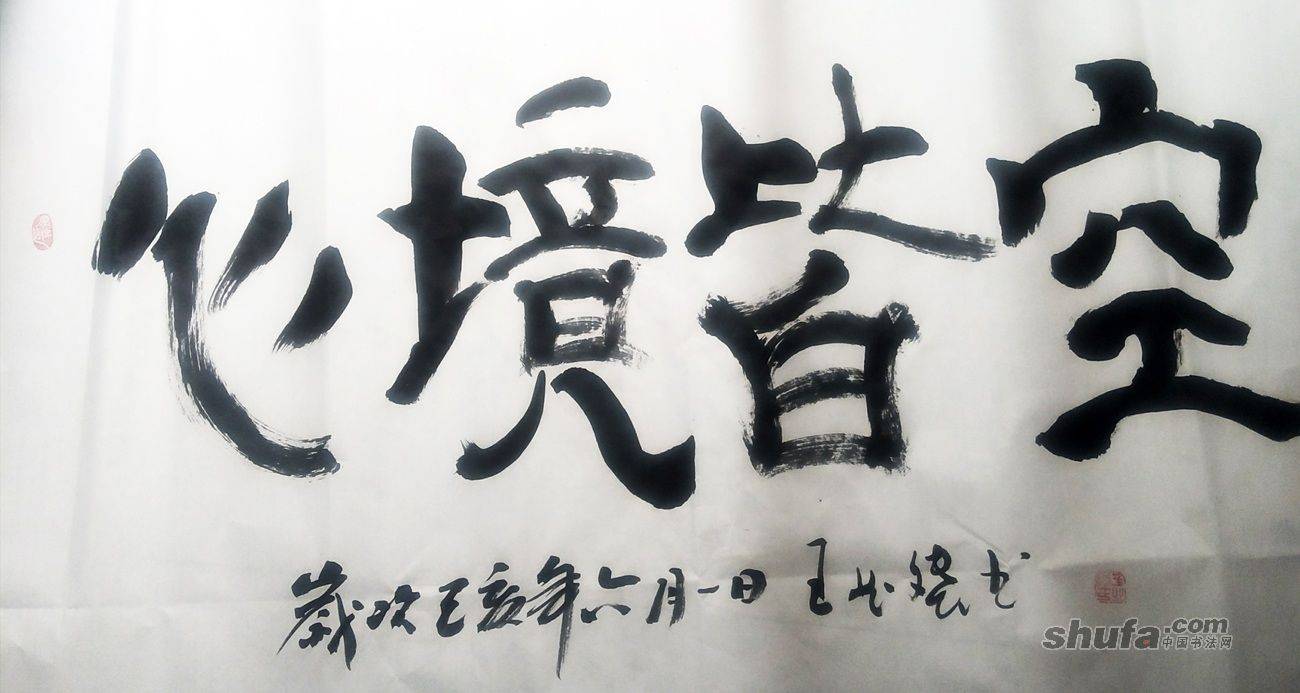 心境皆空
歲次己亥年六月一日 王 书
shufa.com
中国书法网